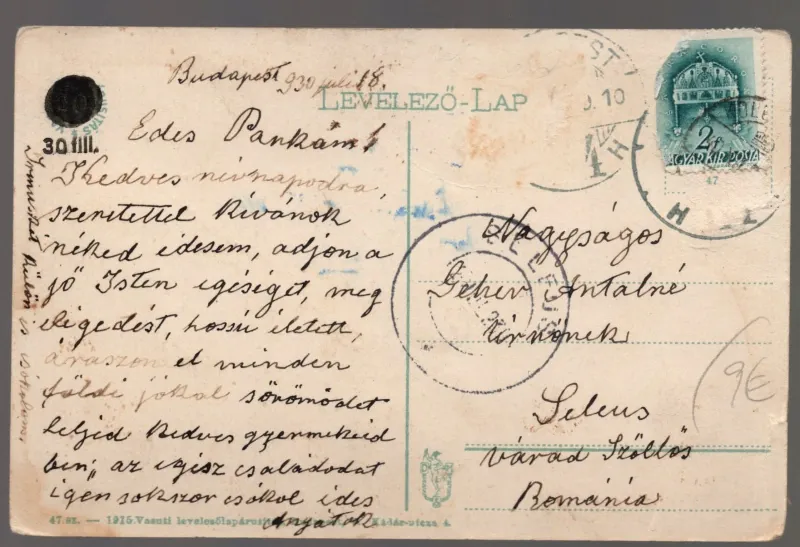 Budapest 930 juli 18.
LEVELEZŐ-LAP
30 fill.
Edes Pankám!
Kedves névnapodra,
szeretettel kivánok
néked idesem, adjon a
jó Isten egéséget, meg
eligedést, hossú életett,
áraszon el minden
földi jókal sörömödet
leljed kedves gyermekeid
ben, az egisz csaladodat
igen sokszor csókol ides
Anyátok
Nagyságos
Geher Antalné
úrnőnek
Seleus
várad Szöllős
Románia
2f
MAGYAR KIR. POSTA
47
10
4
H
9€
47.sz. — 1915. Vasuti levelezőlapárusitás
Kádár-utcza 4.